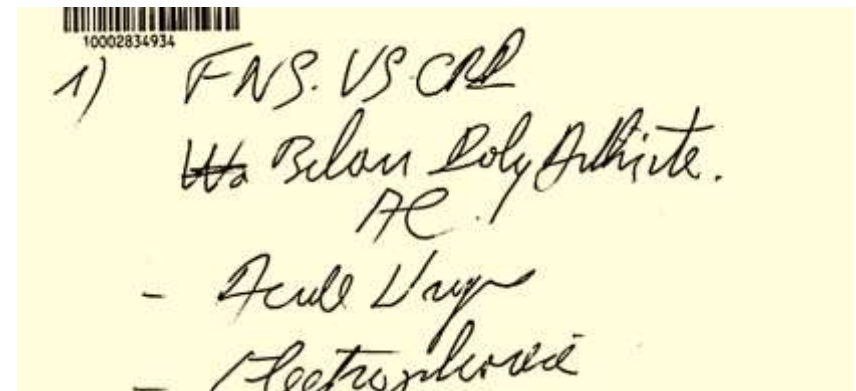 10002834934
1) FNS. VS. CRP
Bilan Poly Arthrite.
- Acide Uriq
- Electrophorese